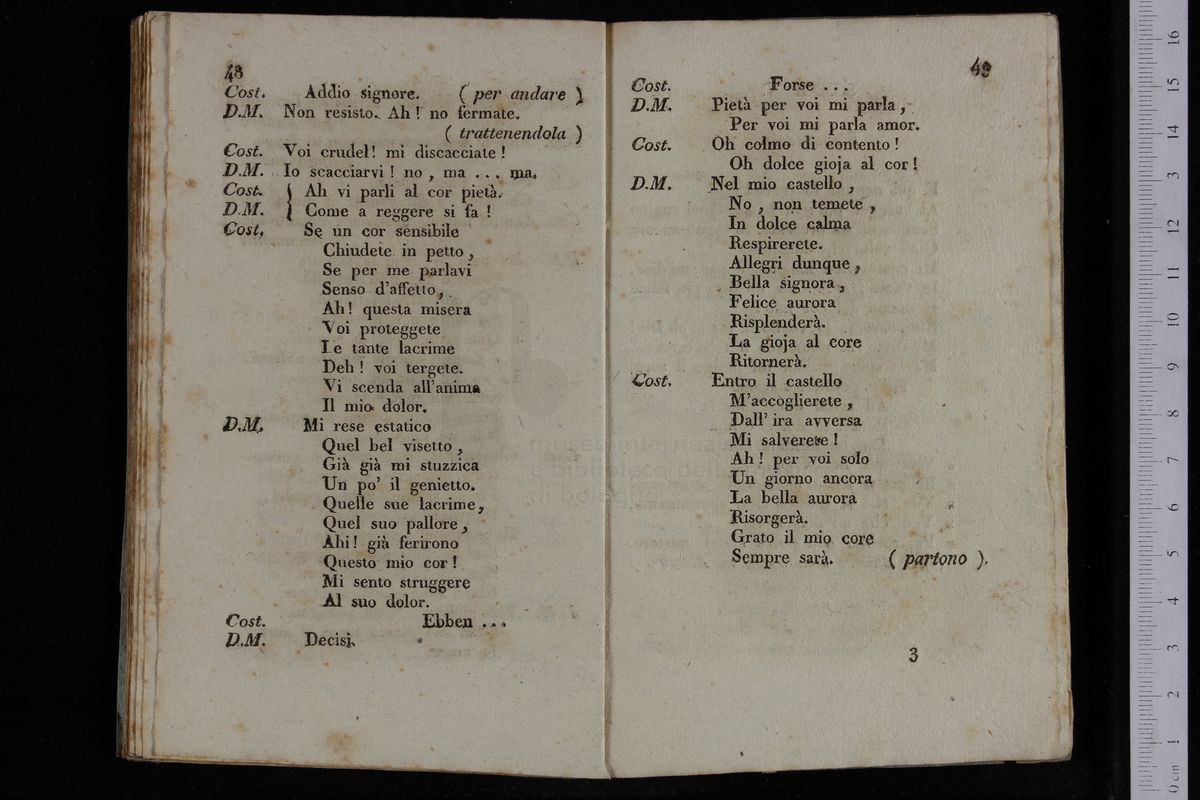 48
Cost. Addio signore. ( per andare )
D.M. Non resisto. Ah ! no fermate.
( trattenendola )
Cost. Voi crudel! mi discacciate !
D.M. Io scacciarvi ! no , ma . . . ma.
Cost. Ah vi parli al cor pietà.
D.M. Come a reggere si fa !
Cost. Se un cor sensibile
Chiudete in petto ,
Se per me parlavi
Senso d'affetto ,
Ah! questa misera
Voi proteggete
Le tante lacrime
Deh ! voi tergete.
Vi scenda all'anima
Il mio dolor.
D.M. Mi rese estatico
Quel bel visetto ,
Già già mi stuzzica
Un po' il genietto.
Quelle sue lacrime ,
Quel suo pallore ,
Ahi! già ferirono
Questo mio cor !
Mi sento struggere
Al suo dolor.
Cost. Ebben . . .
D.M. Decisi.
49
Cost. Forse . . .
D.M. Pietà per voi mi parla ,
Per voi mi parla amor.
Cost. Oh colmo di contento !
Oh dolce gioja al cor !
D.M. Nel mio castello ,
No , non temete ,
In dolce calma
Respirerete.
Allegri dunque ,
Bella signora ,
Felice aurora
Risplenderà.
La gioja al core
Ritornerà.
Cost. Entro il castello
M'accoglierete ,
Dall' ira avversa
Mi salverete !
Ah ! per voi solo
Un giorno ancora
La bella aurora
Risorgerà.
Grato il mio core
Sempre sarà. ( partono ).
3